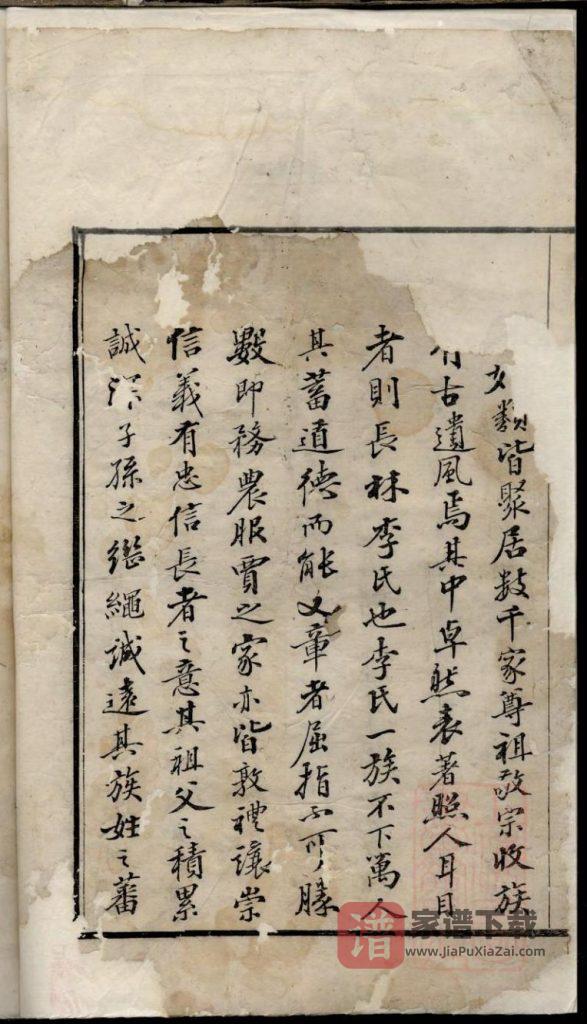 類皆聚居数千家尊祖敬宗收族
有古遺風焉其中卓然表著照人耳目
者則長林李氏也李氏一族不下萬人
其蓄道德而能文章者屈指不可勝
數即務農服賈之家亦皆敦禮讓崇
信義有忠信長者之意其祖父之積累
誠厚子孫之繼繩誠遠其族姓之蕃
谱 家谱下载
www.JiaPuXiaZai.com